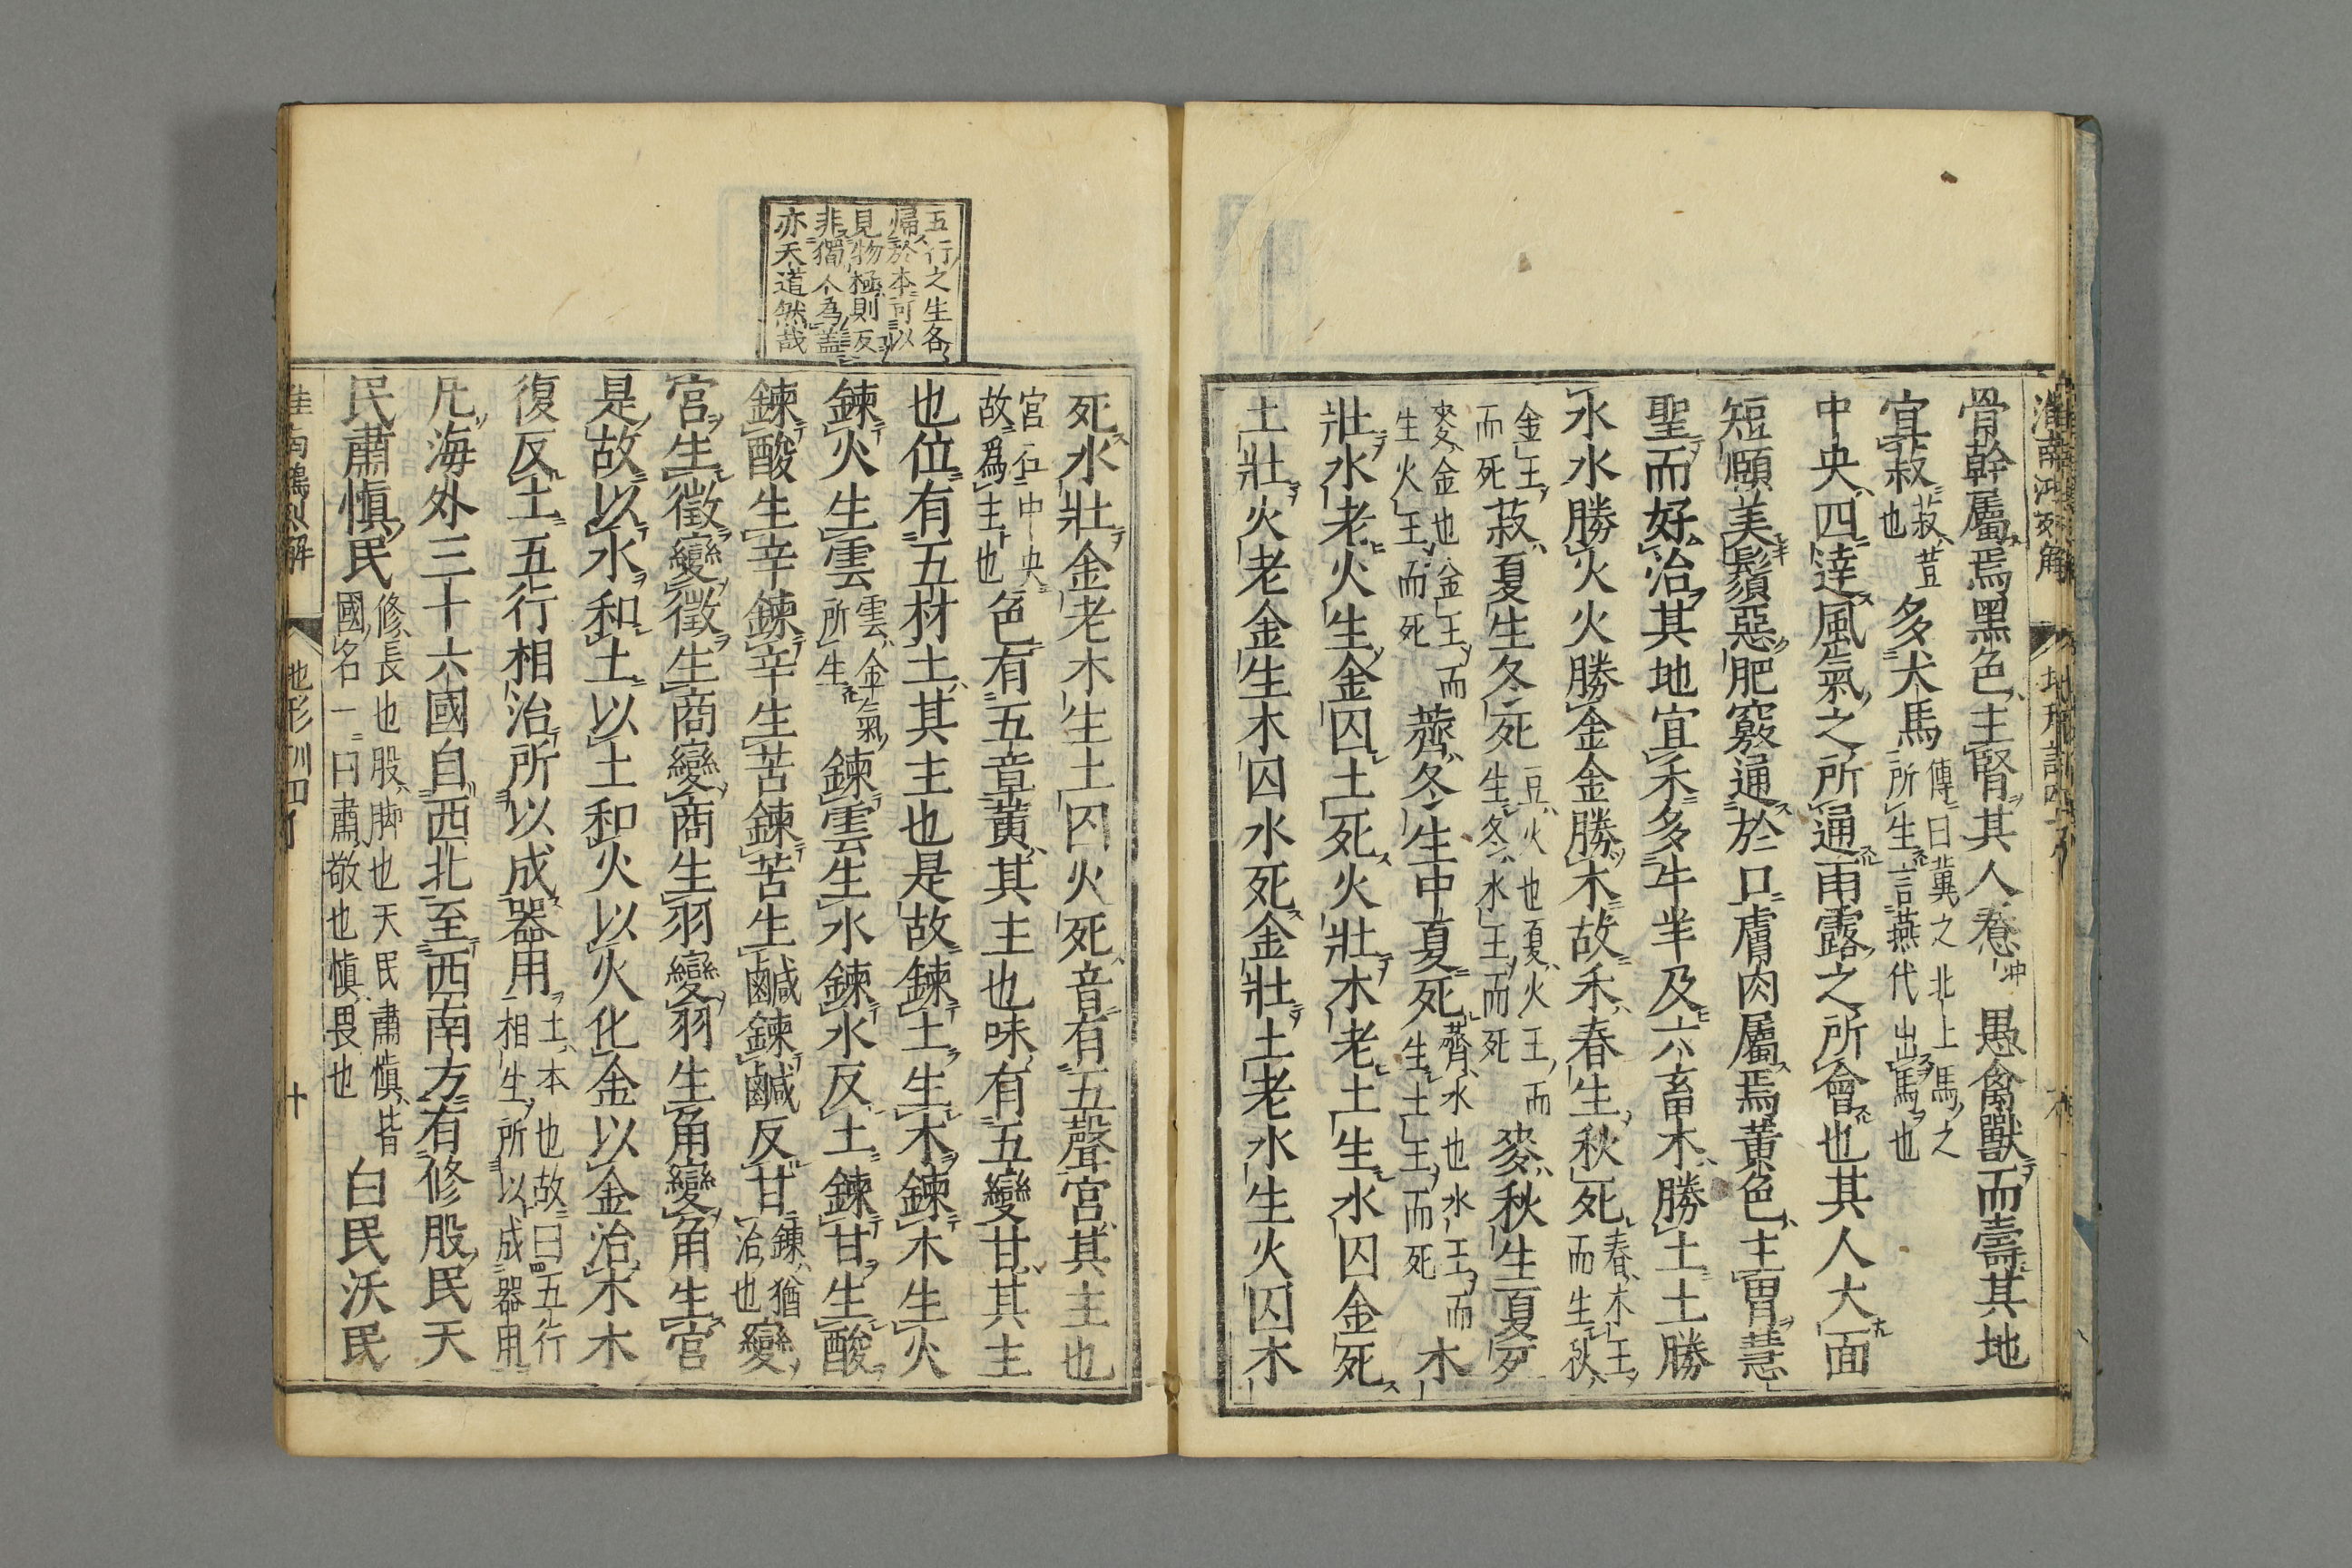 淮南鴻烈解　地形訓四
骨幹屬焉黑色主腎其人惷愚禽獸而壽其地
宜菽菽荳也多犬馬傳曰冀之北上馬之所生言燕代出馬也
中央四達風氣之所通雨露之所會也其人大面
短頤美鬚惡肥竅通於口膚肉屬焉黃色主胃慧
聖而好治其地宜禾多牛羊及六畜木勝土土勝
水水勝火火勝金金勝木故禾春生秋死春木王而生秋
金王而死菽夏生冬死豆火也夏火王而生冬水王而死麥秋生夏死
麥金也金王而生火王而死薺冬生中夏死薺水也水王而生土王而死木
壯水老火生金囚土死火壯木老土生水囚金死
土壯火老金生木囚水死金壯土老水生火囚木
死水壯金老木生土囚火死音有五聲宮其主也
宮在中央故爲主也色有五章黃其主也味有五變甘其主
也位有五材土其主也是故鍊土生木鍊木生火
鍊火生雲雲金氣所生鍊雲生水鍊水反土鍊甘生酸
鍊酸生辛鍊辛生苦鍊苦生鹹鍊鹹反甘鍊猶治也變
宮生徵變徵生商變商生羽變羽生角變角生宮
是故以水和土以土和火以火化金以金治木木
復反土五行相治所以成器用土本也故曰五行相生所以成器用
凡海外三十六國自西北至西南方有修股民天
民肅慎民修長也股脚也天民肅慎皆國名一曰肅敬也慎畏也白民沃民
淮南鴻烈解　地形訓四　十
五行之生各
歸於本可以
見物極則反
非獨人為蓋
亦天道然哉